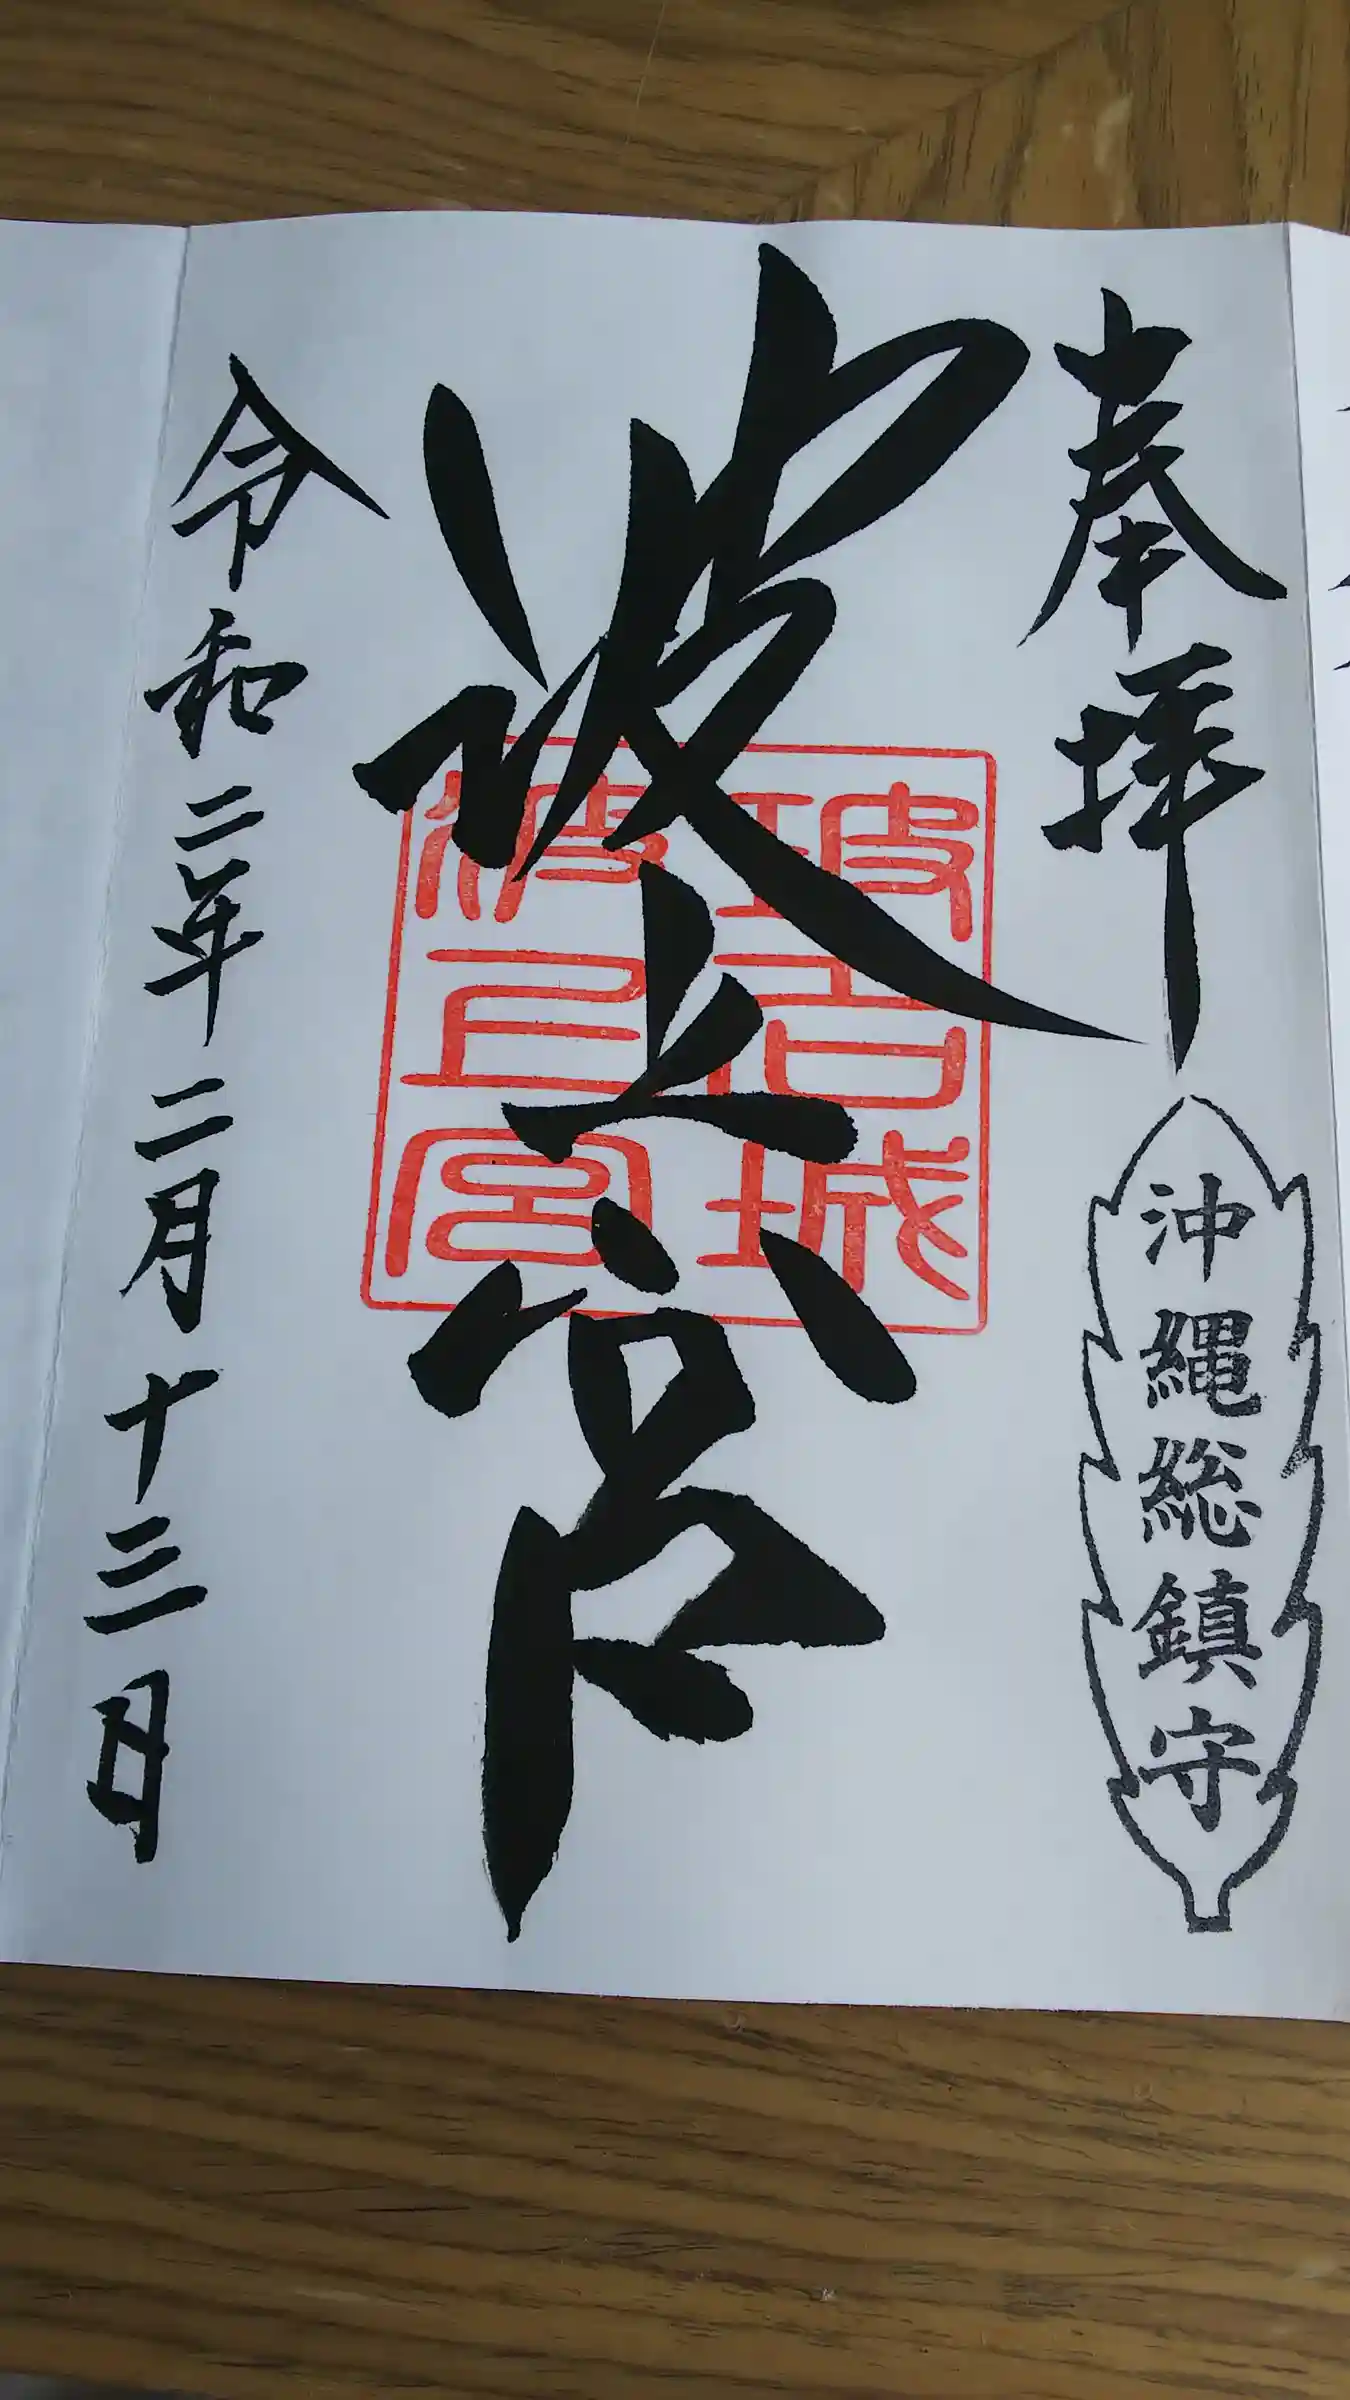 奉拝
沖縄総鎮守
波上宮
玻名城
波上宮
令和二年二月十三日